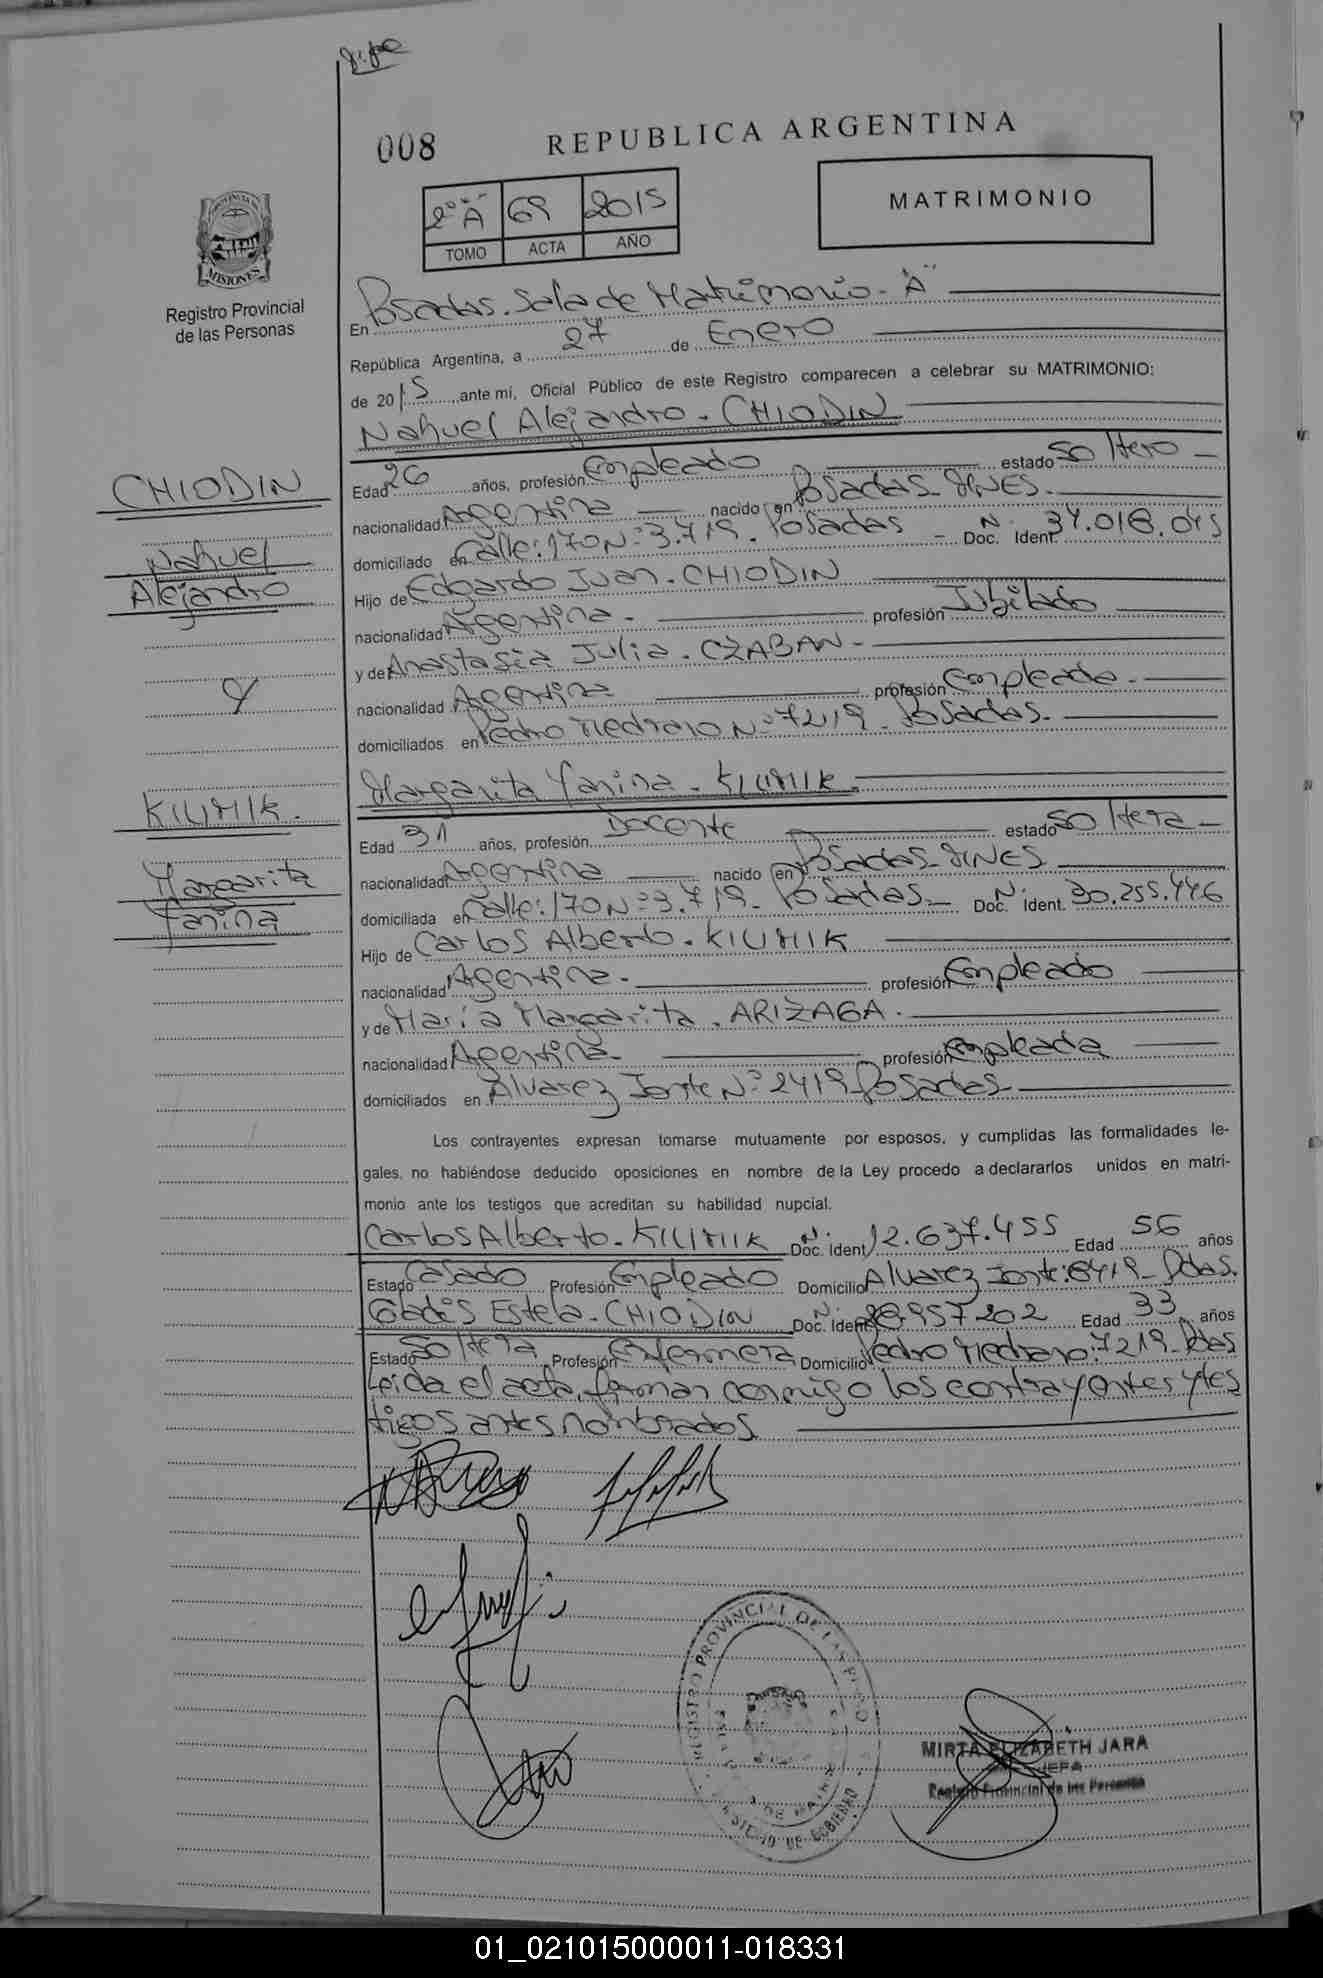 008
REPUBLICA ARGENTINA
2º "A" 69 2015
TOMO ACTA AÑO
MATRIMONIO
PROVINCIA DE
MISIONES
Registro Provincial
de las Personas
En Posadas. Sala de Matrimonio - "A"
República Argentina, a 27 de Enero
de 2015, ante mí, Oficial Público de este Registro comparecen a celebrar su MATRIMONIO:
Nahuel Alejandro. CHIODIN
CHIODIN
Nahuel
Alejandro
y
KILIMIK.
Margarita
Yanina
Edad 26 años, profesión Empleado estado Soltero
nacionalidad Argentina nacido en Posadas - MNES.
domiciliado en Calle: 170 Nº 3.719. Posadas - Doc. Ident. Nº 34.018.015
Hijo de Edgardo Juan. CHIODIN
nacionalidad Argentina. profesión Jubilado
y de Anastasia Julia. CZABAN
nacionalidad Argentina profesión Empleada.
domiciliados en Pedro Medrano Nº 7219. Posadas.
Margarita Yanina. KILIMIK.
Edad 31 años, profesión Docente estado Soltera
nacionalidad Argentina nacido en Posadas - MNES
domiciliada en Calle: 170 Nº 3.719. Posadas - Doc. Ident. Nº 30.255.446
Hijo de Carlos Alberto. KILIMIK
nacionalidad Argentina. profesión Empleado
y de María Margarita. ARIZAGA.
nacionalidad Argentina profesión Empleada
domiciliados en Alvarez Jonte Nº 2419 Posadas
Los contrayentes expresan tomarse mutuamente por esposos, y cumplidas las formalidades le-
gales, no habiéndose deducido oposiciones en nombre de la Ley procedo a declararlos unidos en matri-
monio ante los testigos que acreditan su habilidad nupcial.
Carlos Alberto. KILIMIK Doc. Ident. Nº 12.637.455 Edad 56 años
Estado Casado Profesión Empleado Domicilio Alvarez Jonte: Pdas.
Estela. CHIODIN Doc. Ident. Nº 28.957.202 Edad 33 años
Estado Soltera Profesión Enfermera Domicilio Pedro Medrano: 7219 - Pdas
Leída el acta, firman conmigo los contrayentes y tes
tigos antes nombrados
REGISTRO PROVINCIAL DE LAS PERSONAS
MINISTERIO DE GOBIERNO
MIRTA ELIZABETH JARA
JEFA
Registro Provincial de las Personas
01_021015000011-018331